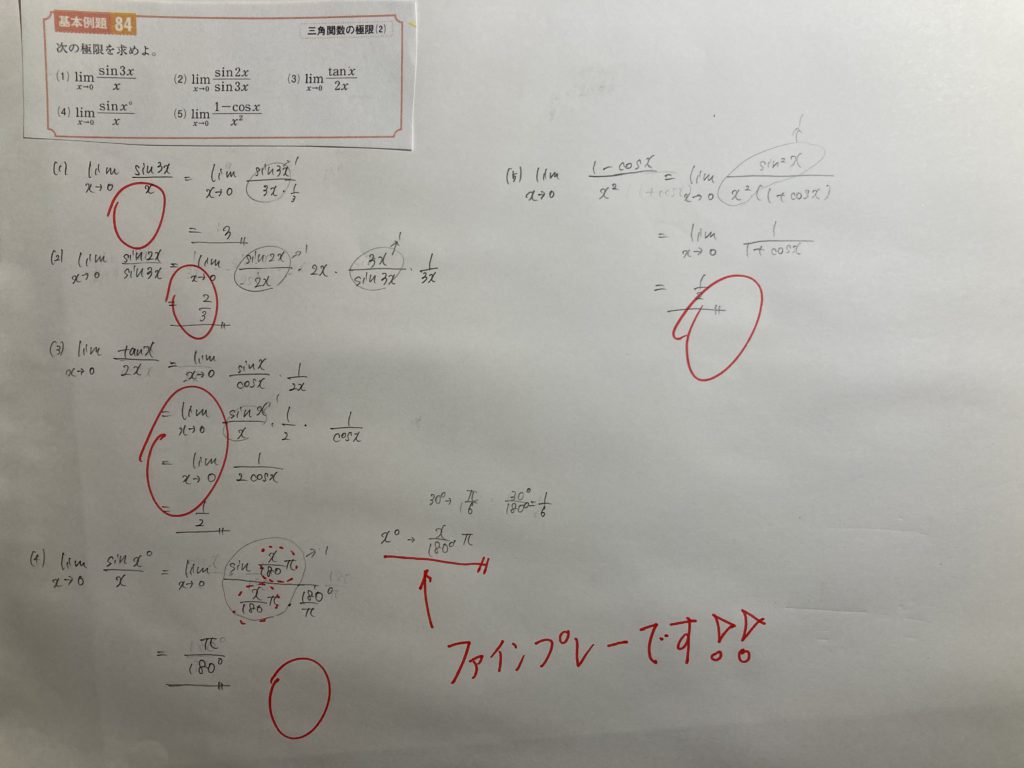 基本例題 84
三角関数の極限(2)
次の極限を求めよ。
(1) lim x→0 sin3x/x (2) lim x→0 sin2x/sin3x (3) lim x→0 tanx/2x
(4) lim x→0 sinx°/x (5) lim x→0 1−cosx/x²
(1) lim x→0 sin3x/x = lim x→0 sin3x/3x・1/3 → 1
= 3
(2) lim x→0 sin2x/sin3x = lim x→0 sin2x/2x → 1 ・ 2x ・ 3x/sin3x → 1 ・ 1/3x
= 2/3
(3) lim x→0 tanx/2x = lim x→0 sinx/cosx ・ 1/2x
= lim x→0 sinx/x → 1 ・ 1/2 ・ 1/cosx
= lim x→0 1/2cosx
= 1/2
30° → π/6 30°/180° = 1/6
x° → x/180° π
(4) lim x→0 sinx°/x = lim x→0 sin x/180 π / x/180 π ・ 180°/π → 1
= π/180°
ファインプレーです!!
(5) lim x→0 1−cosx/x² = lim x→0 sin²x/x²(1+cosx) → 1
= lim x→0 1/1+cosx
= 1/2